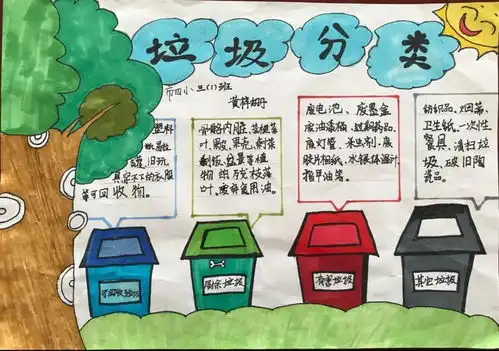 垃圾分类
市四小三(1)班
黄梓珊
塑料
旧玩
具穿不下的衣服
等可回收物。
骨骼内脏、菜梗菜
叶、果皮、果壳、剩菜
剩饭、盆景等植
物组残枝落
叶、废弃食用油。
废电池、废墨盒
废油漆桶、过期药品、
废灯管、杀虫剂、废
胶片相纸、水银体温计、
指甲油等。
纺织品、烟蒂、
卫生纸、一次性
餐具、清扫垃
圾、破旧陶
瓷品。
可回收垃圾
厨余垃圾
有害垃圾
其它垃圾